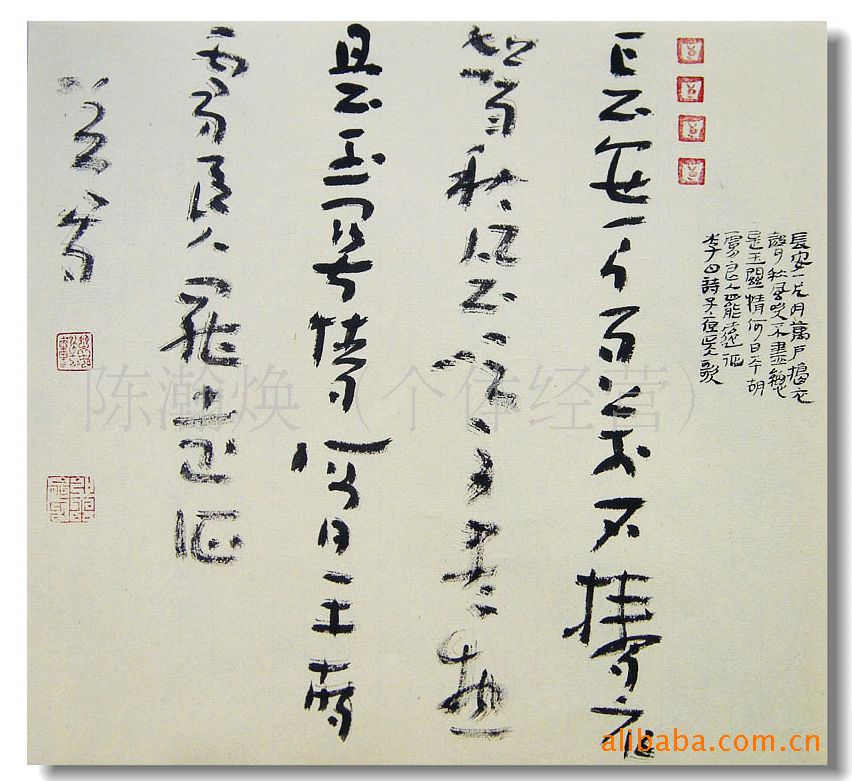 長安一片月萬戶搗衣
聲秋風吹不盡總
是玉關情何日平胡
虜良人罷遠征
長安一片月萬戶搗衣
聲秋風吹不盡總
是玉關情何日平胡
虜良人罷遠征
李白詩子夜吳歌
陈瀚焕（个体经营）
alibaba.com.cn